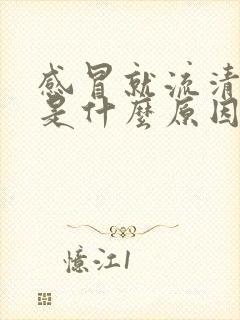 感冒就流清
是什麼原因
憶江1